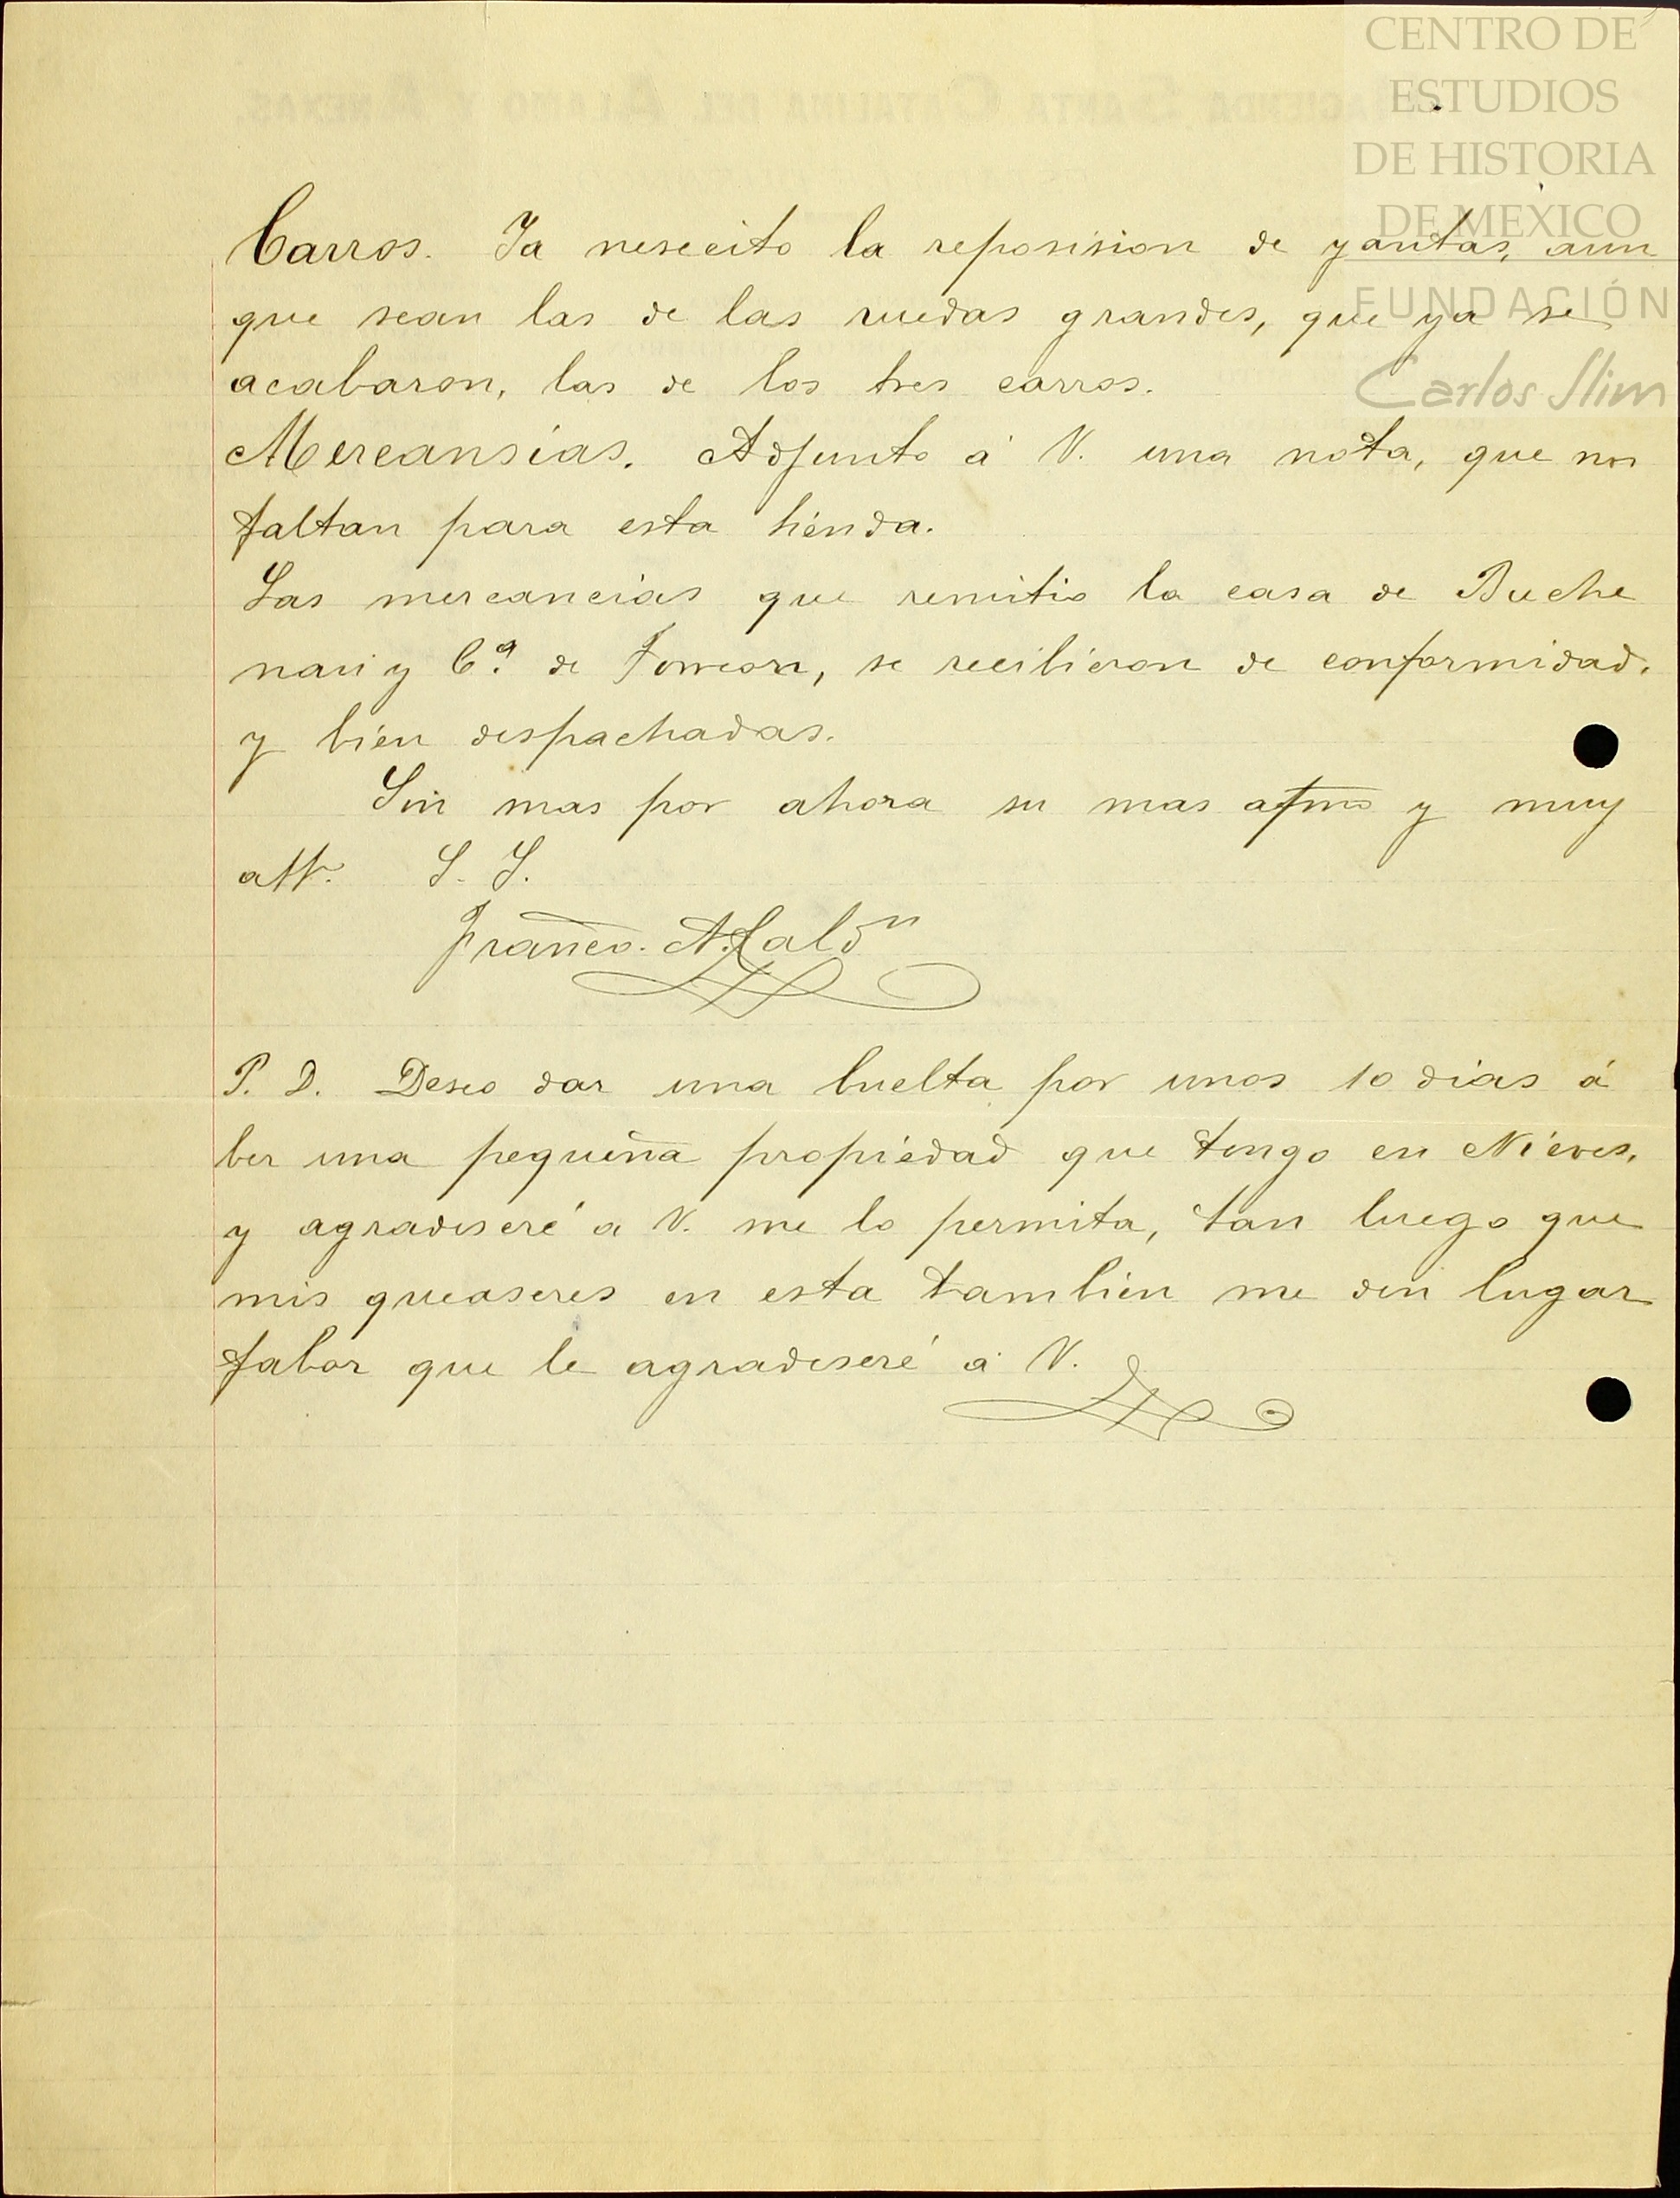 CENTRO DE
ESTUDIOS
DE HISTORIA
DE MEXICO
FUNDACIÓN
Carlos Slim
Carros. Ya nesecito la reposision de yantas, aun
que sean las de las ruedas grandes, que ya se
acabaron, las de los tres carros.
Mercansías. Adjunto á V. una nota, que nos
faltan para esta tiénda.
Las mercancias que remitio la casa de Buche
nau y Cª. de Torreon, se recibieron de conformidad.
y bién despachadas.
Sin mas por ahora su mas afmo y muy
att. S. S.
Franco. A. Caldn
P. D. Deseo dar una buelta por unos 10 dias á
ber una pequeña propiédad que tengo en Niéves,
y agradeseré a V. me lo permita, tan luego que
mis queaseres en esta tambien me den lugar
fabor que le agradeseré á V.